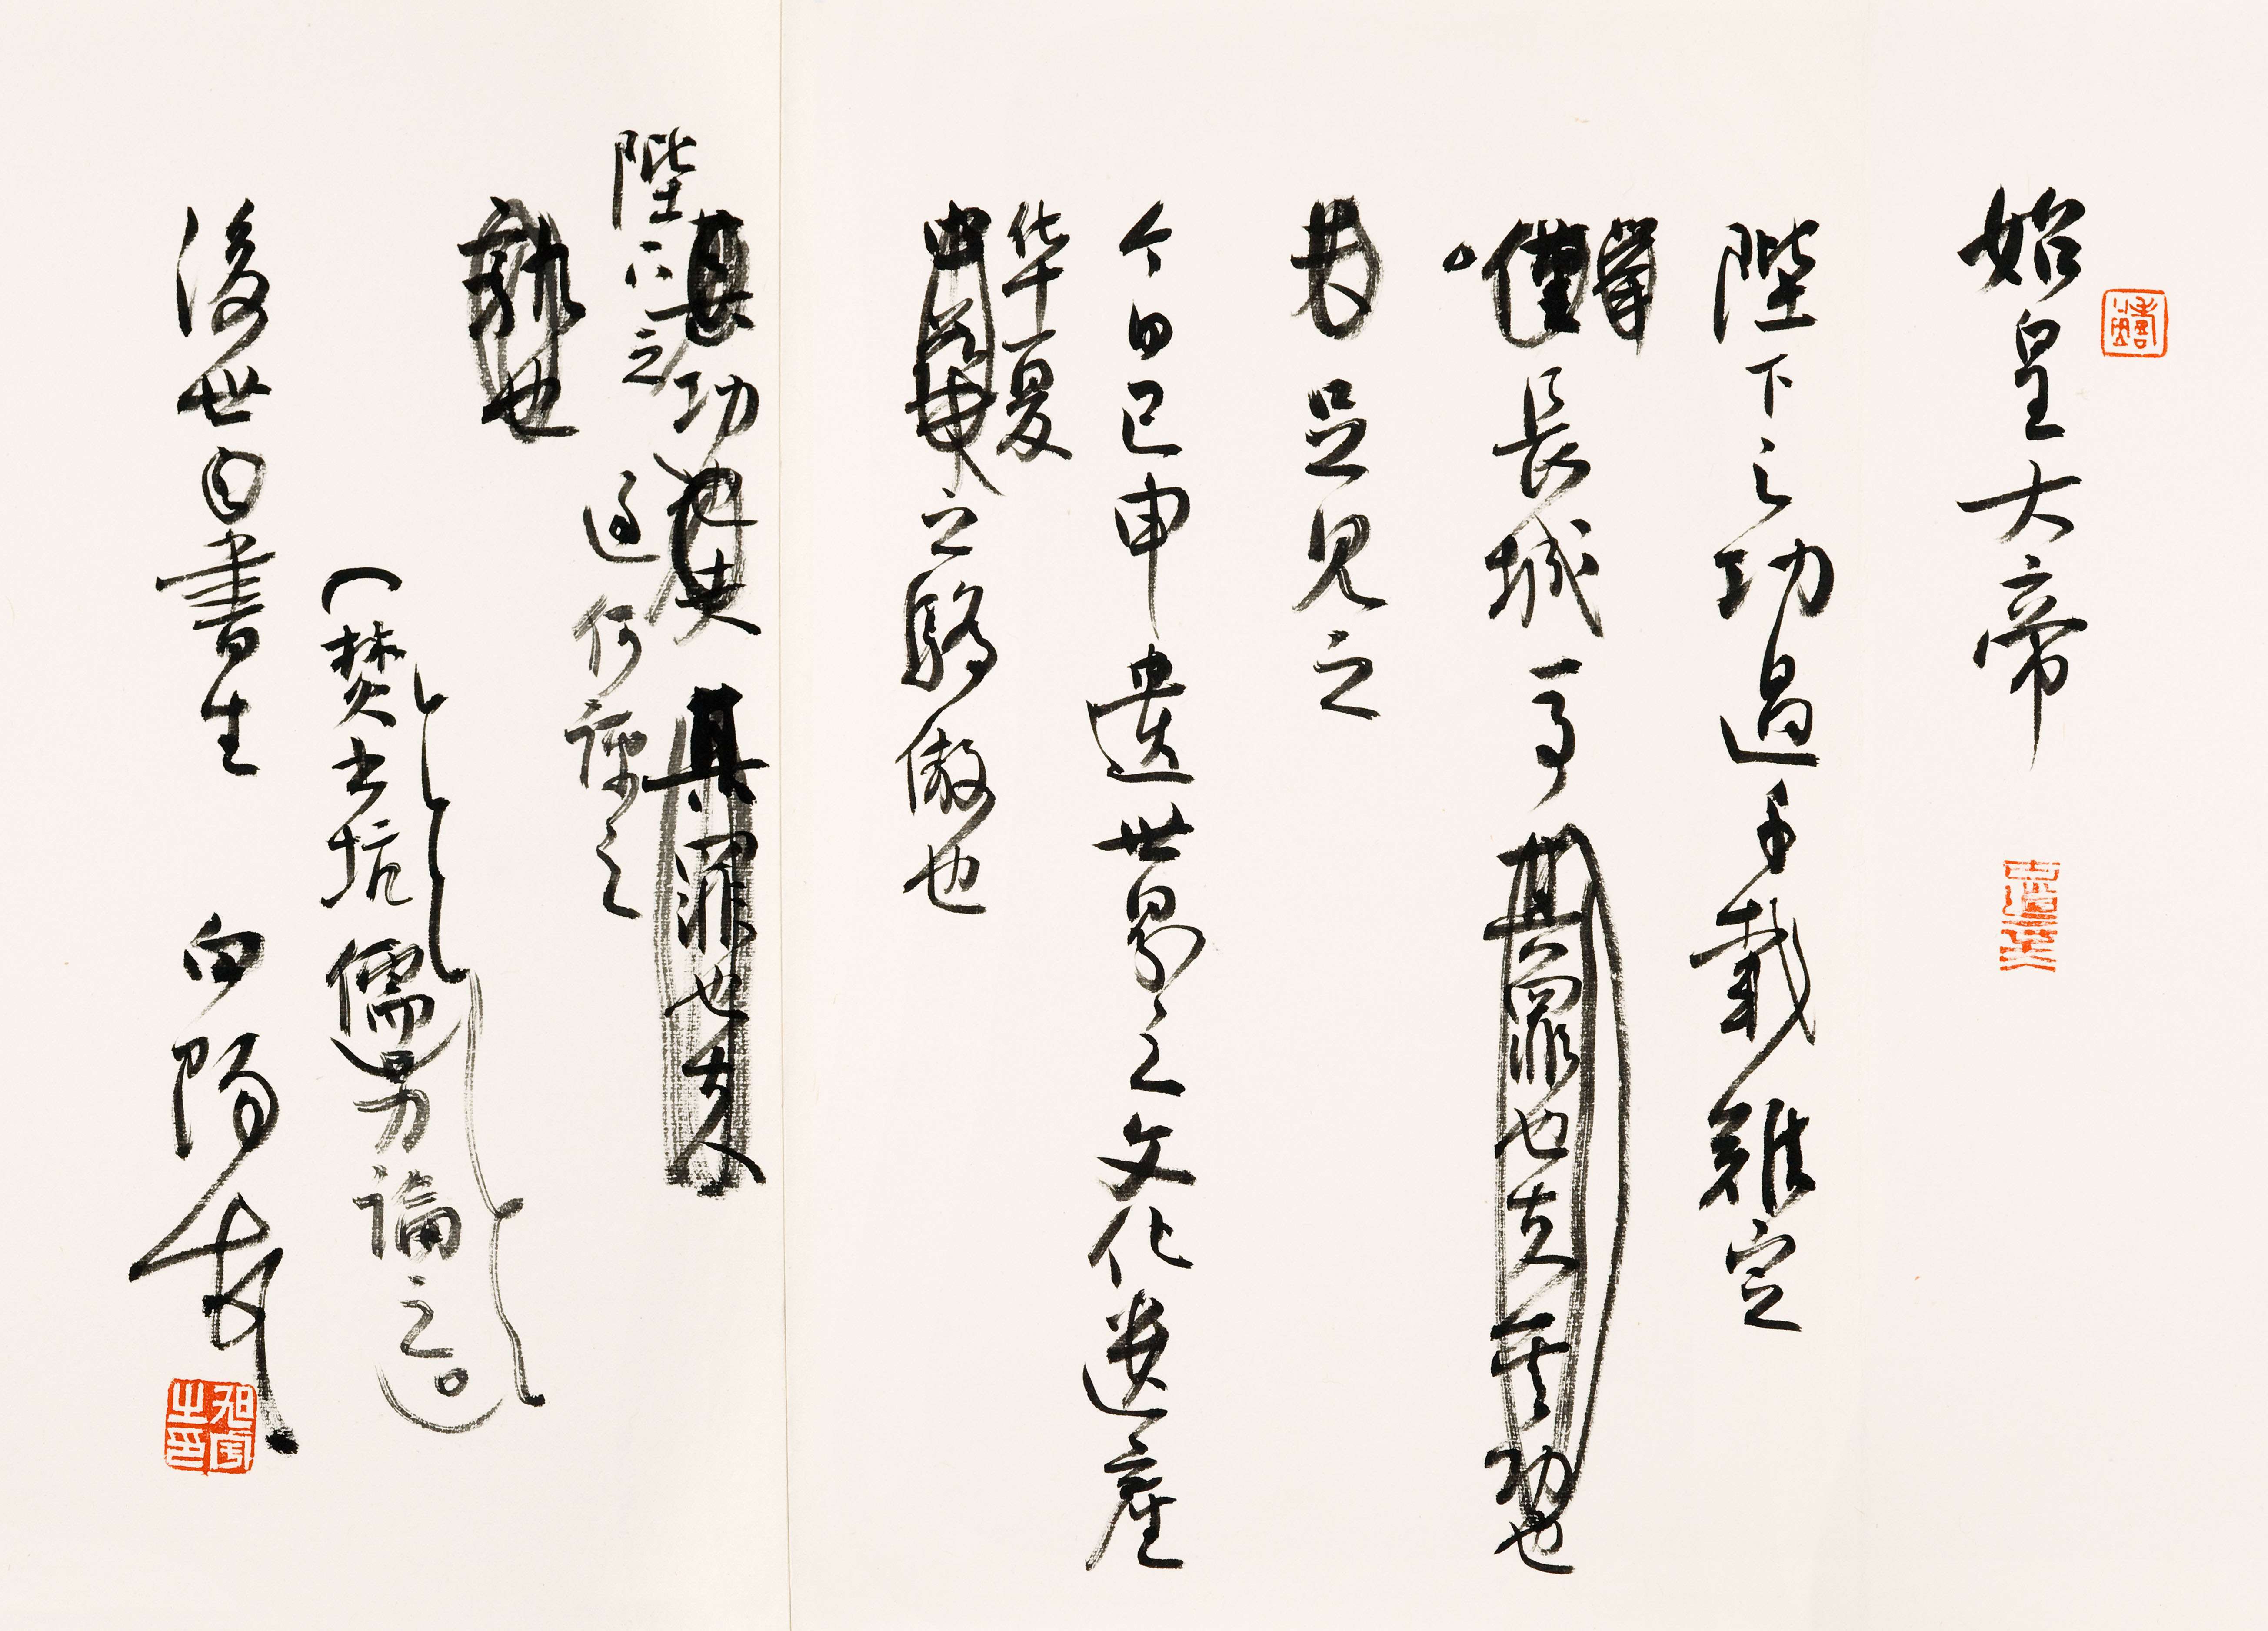 始皇大帝
陛下之功過千載難定
僅舉長城一事其罪也其功也
足見之
今日已申遺世界之文化遺産
华夏
之驕傲也
其功也其罪也
陛下之
過何譚之
孰也
(焚书坑儒另論之。)
後世白書生 白陽
旭宙之印